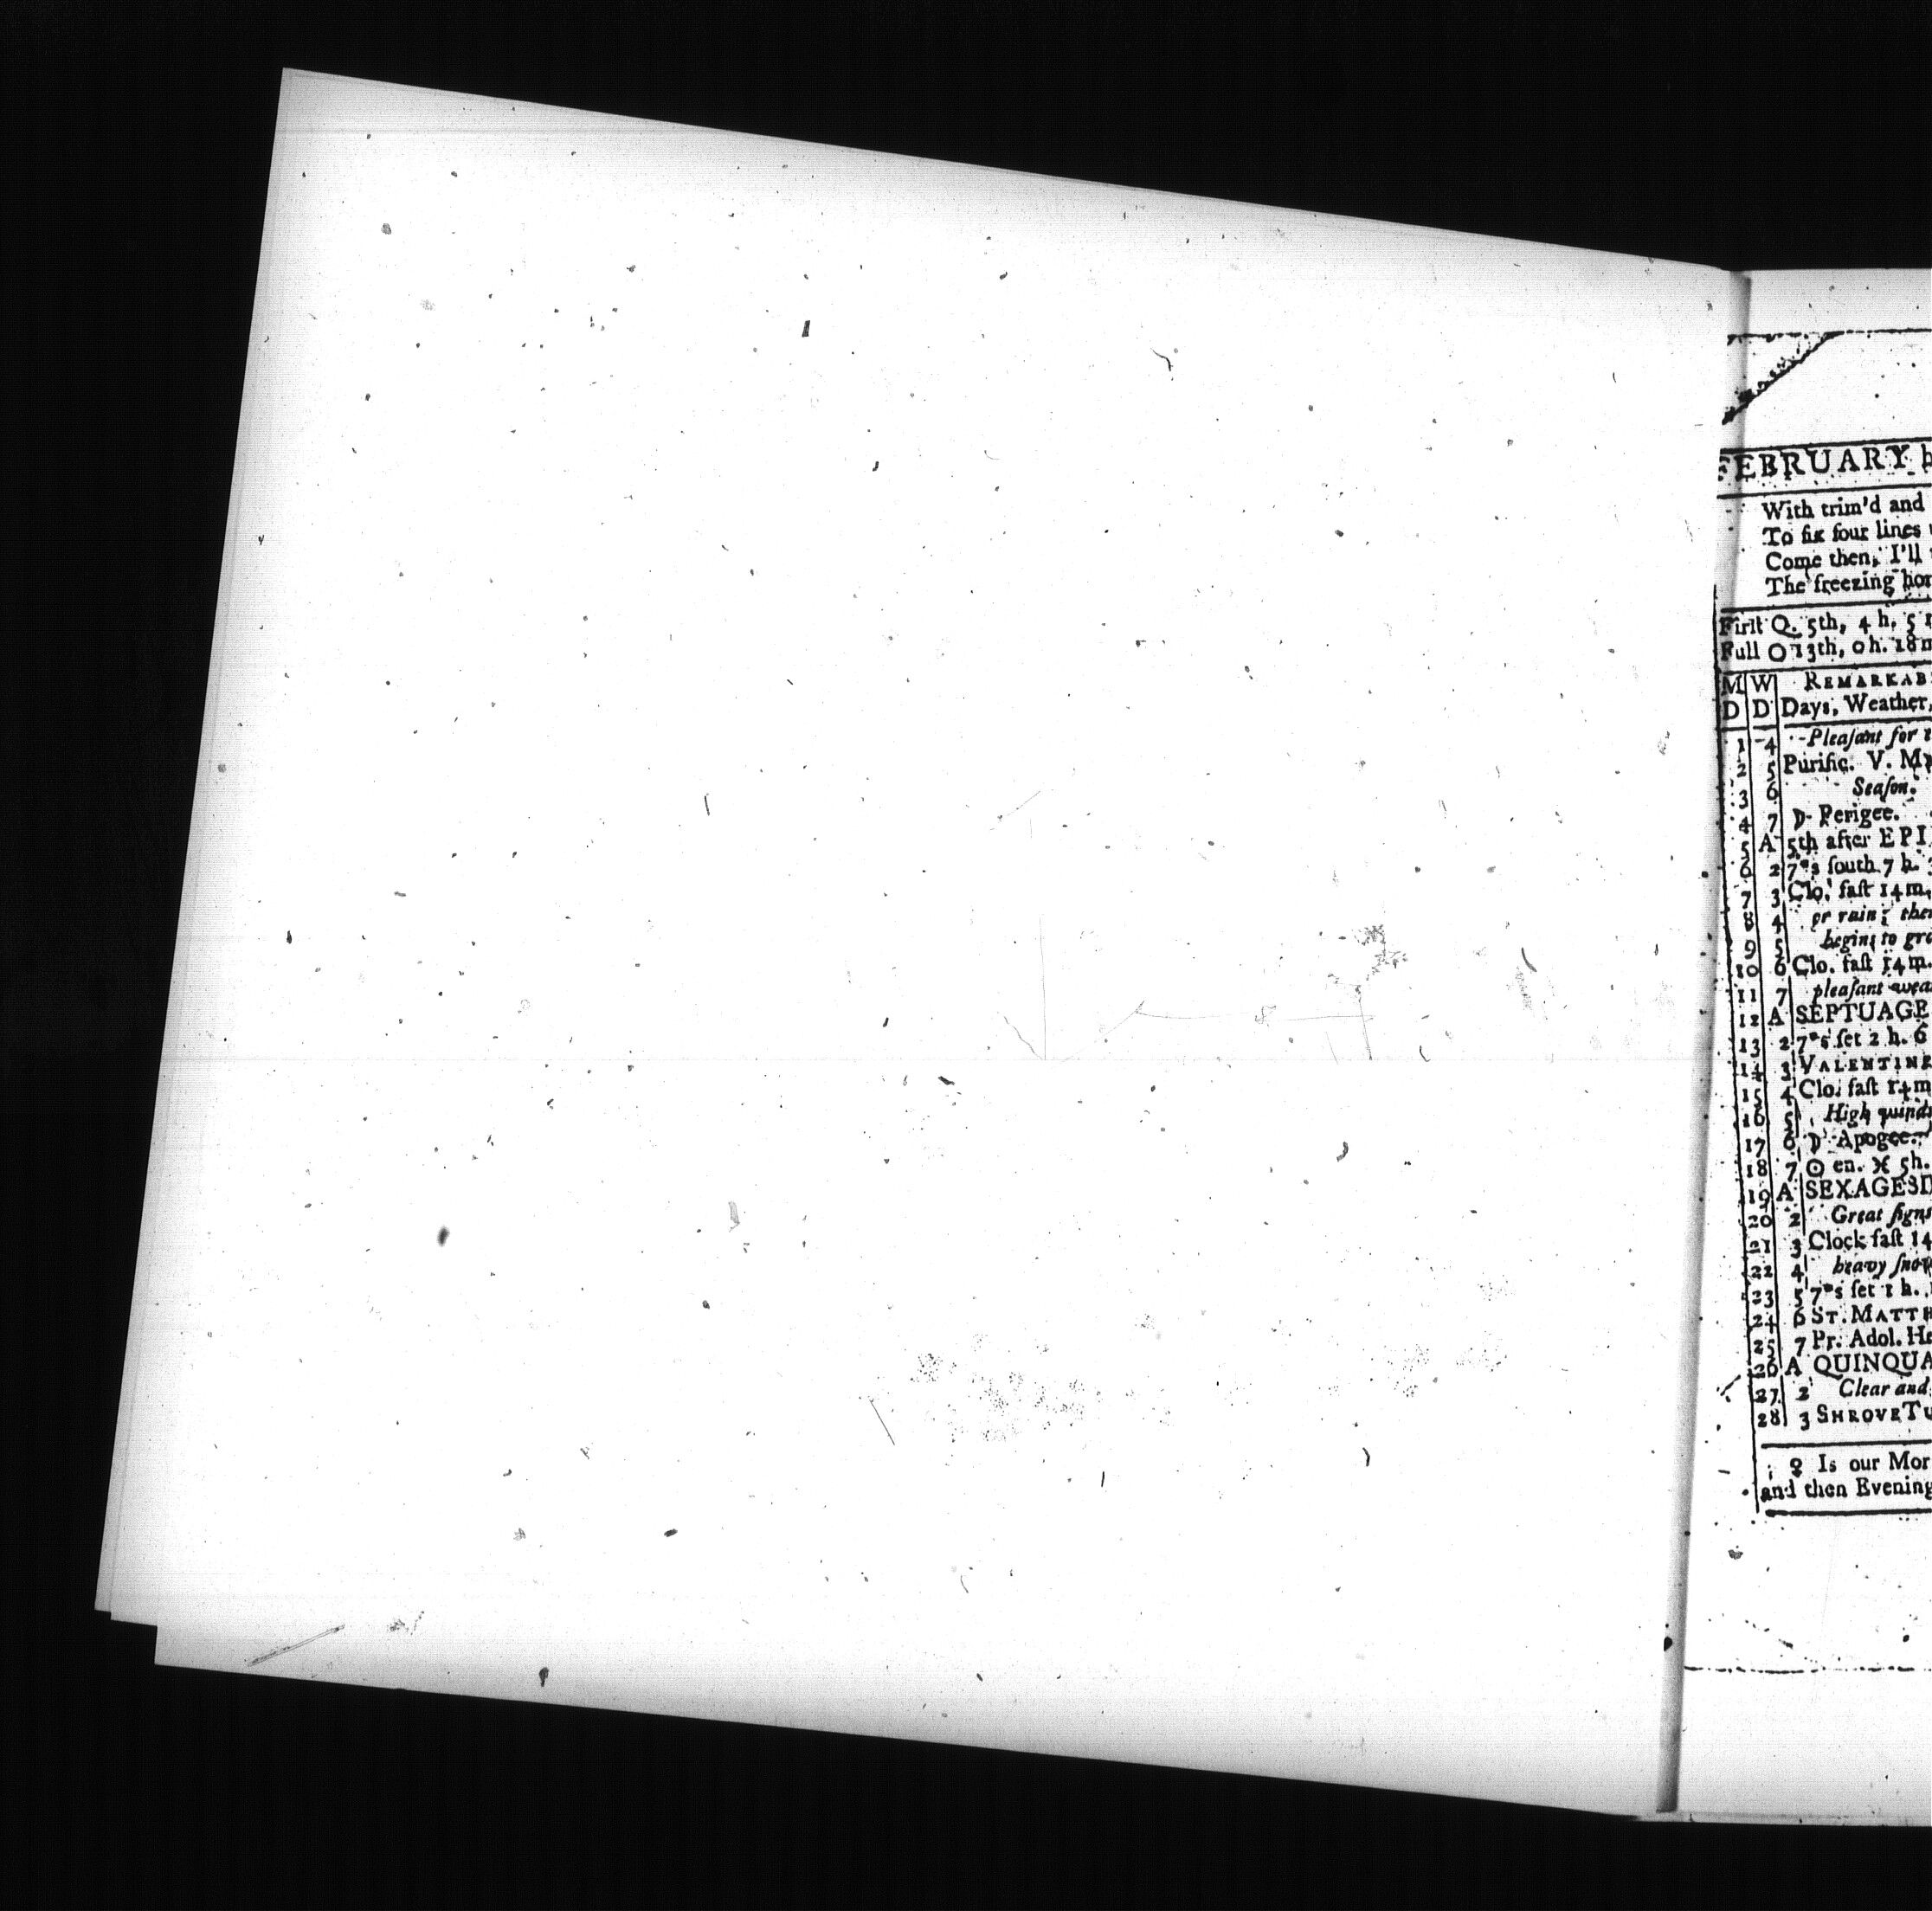 FEBRUARY h
With trim'd and
To fix four lines
Come then, I'll
The freezing hor
Firſt Q. 5th, 4 h. 5
Full ○ 13th, 0 h. 18 m
M W REMARKAB
D D Days, Weather,
1 4 Pleaſant for t
2 5 Purific. V. M
3 6 Seaſon.
4 7 ☽ Perigee.
5 A 5th after EPI
6 2 7*s ſouth 7 h.
7 3 Clo. faſt 14 m.
8 4 or rain; then
9 5 begins to gro
10 6 Clo. faſt 14 m.
11 7 pleaſant wea
12 A SEPTUAGE
13 2 7*s ſet 2 h. 6
14 3 VALENTINE
15 4 Clo. faſt 14 m
16 5 High winds
17 6 ☽ Apogee.
18 7 ☉ en. ♓ 5h.
19 A SEXAGESI
20 2 Great ſigns
21 3 Clock faſt 14
22 4 heavy ſnow
23 5 7*s ſet 1 h.
24 6 ST. MATTH
25 7 Pr. Adol. He
26 A QUINQUA
27 2 Clear and
28 3 SHROVE TU
♀ Is our Mor
and then Evening